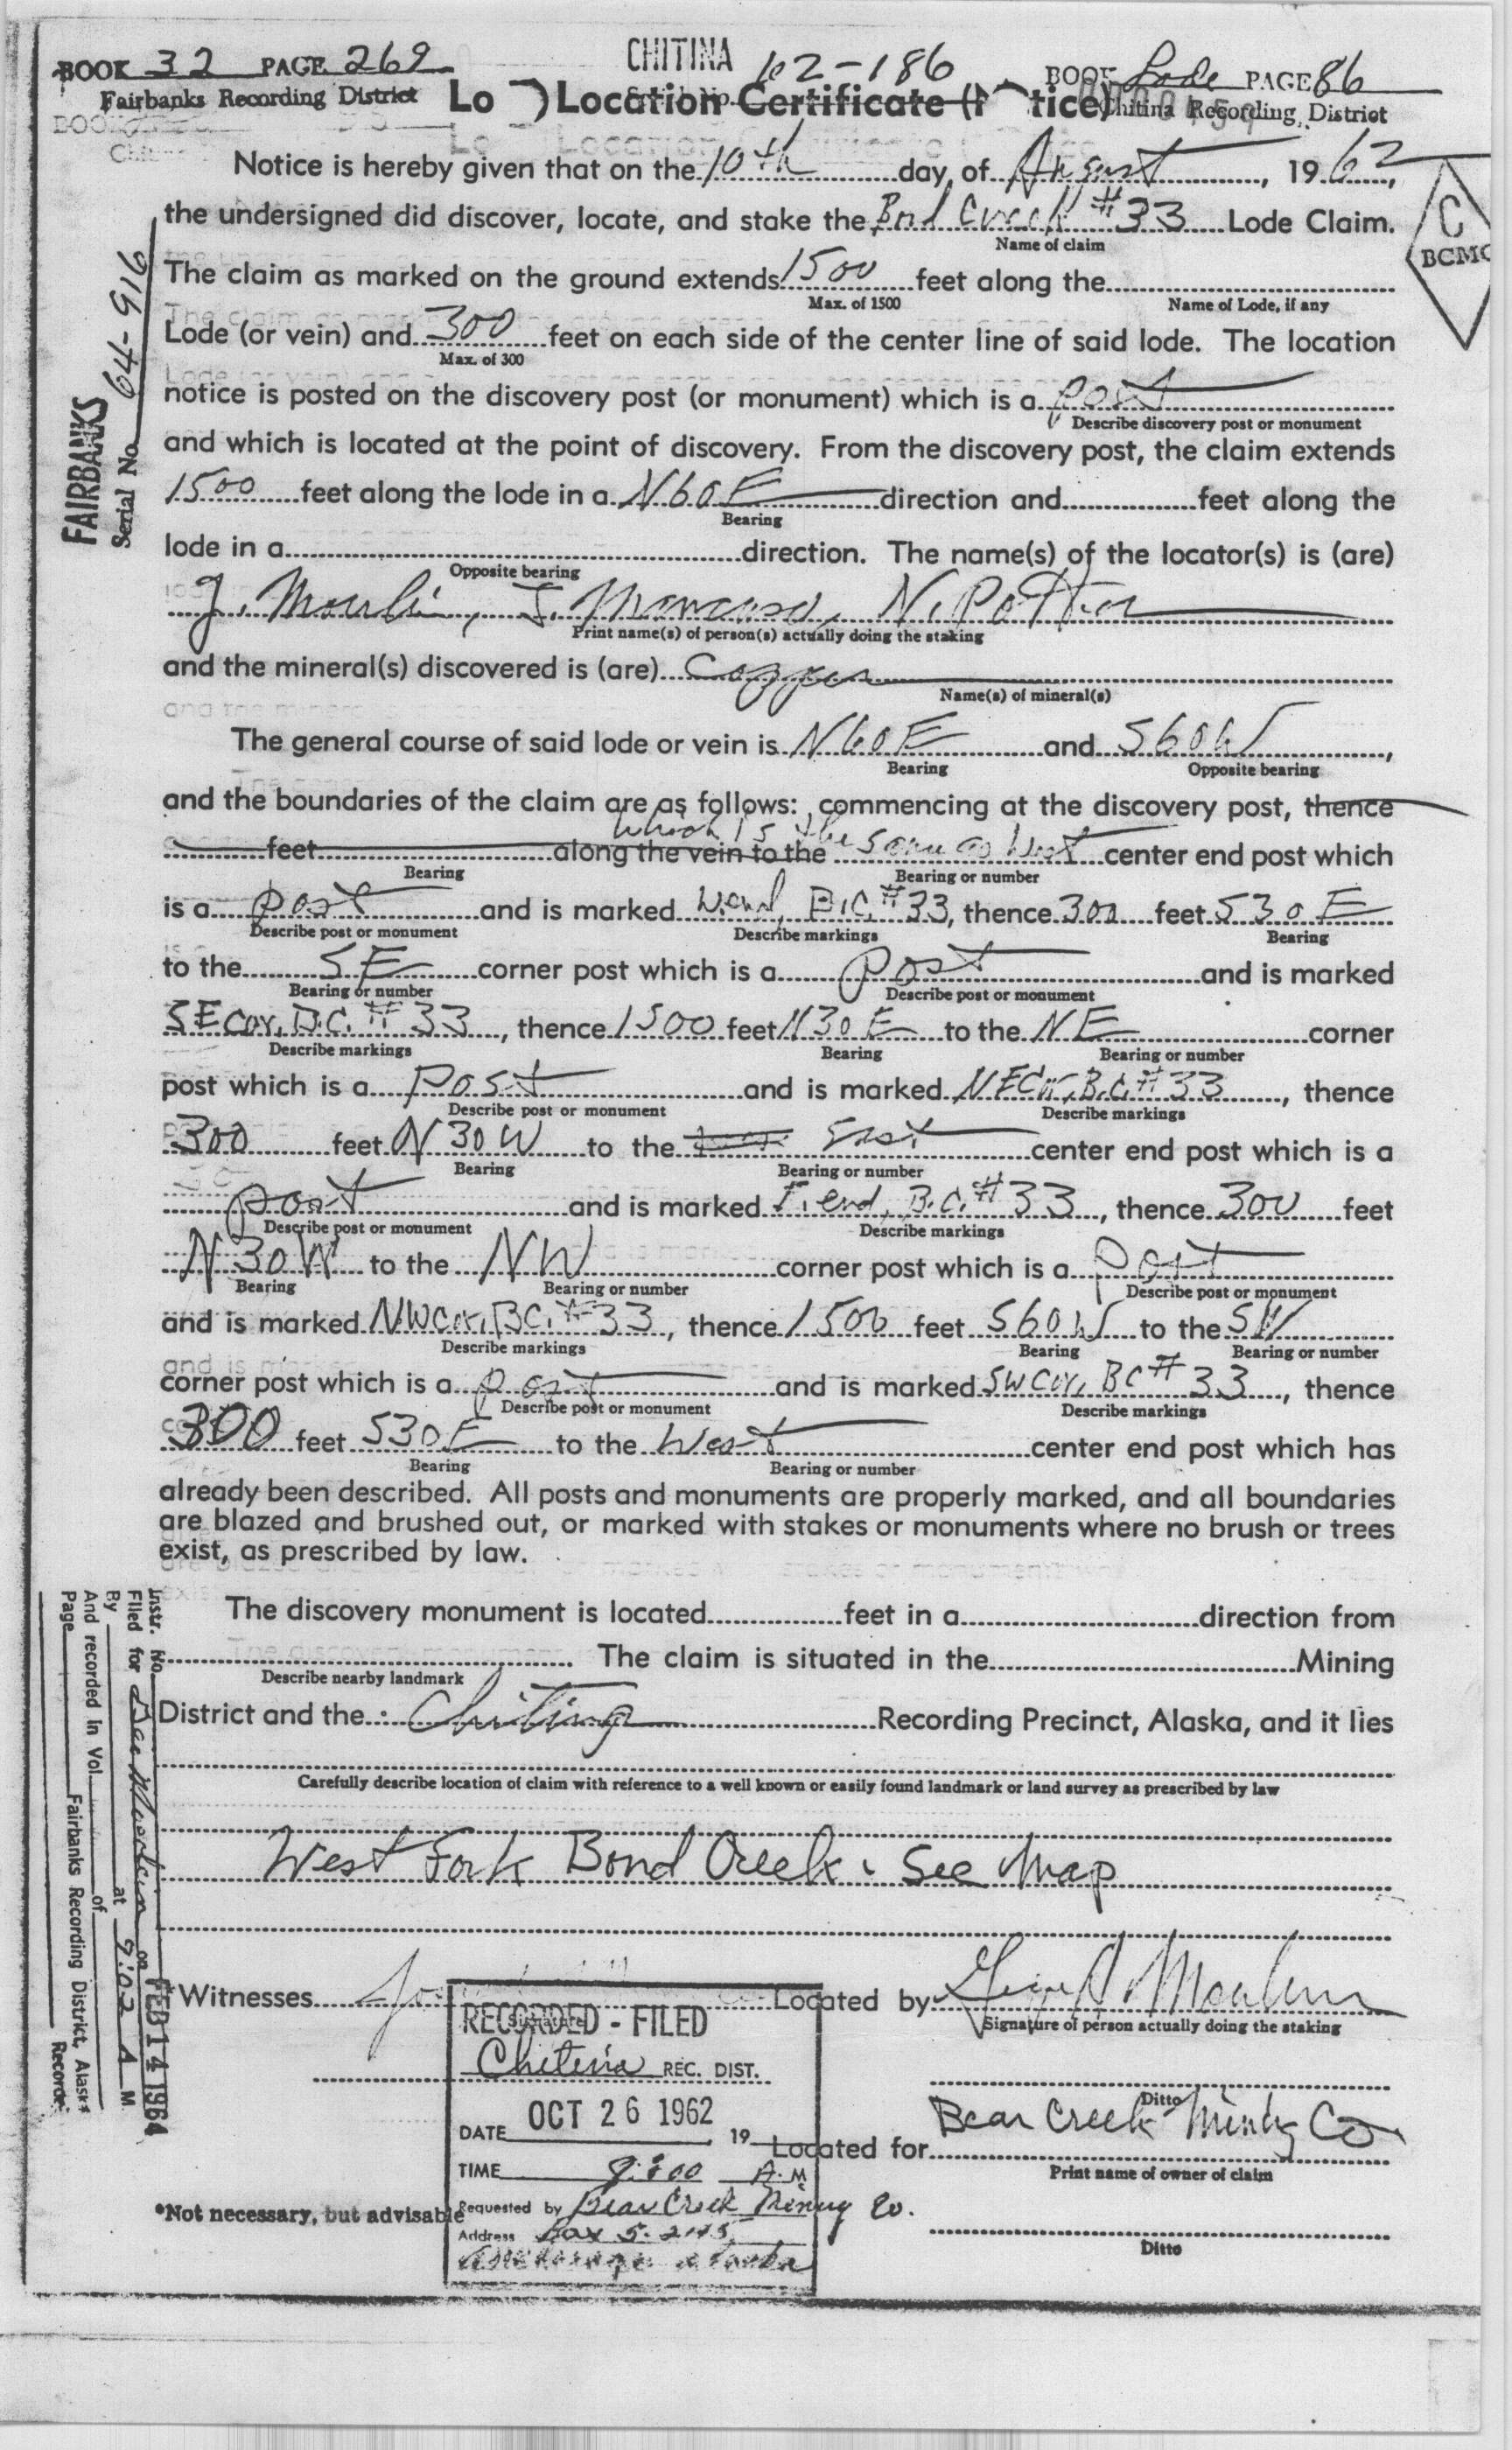 BOOK 32 PAGE 269
Fairbanks Recording District
CHITINA
62-186
BOOK Lode PAGE 86
Chitina Recording District
Lo Location Certificate (N tice)
Notice is hereby given that on the 10th day of August, 1962,
the undersigned did discover, locate, and stake the Bnd Creek #33 Lode Claim.
Name of claim
C
BCMC
The claim as marked on the ground extends 1500 feet along the
Max. of 1500 Name of Lode, if any
Lode (or vein) and 300 feet on each side of the center line of said lode. The location
Max. of 300
notice is posted on the discovery post (or monument) which is a post
Describe discovery post or monument
and which is located at the point of discovery. From the discovery post, the claim extends
1500 feet along the lode in a N60E direction and feet along the
Bearing
lode in a direction. The name(s) of the locator(s) is (are)
Opposite bearing
J. Moulin, J. Mancuso, N. Potter
Print name(s) of person(s) actually doing the staking
and the mineral(s) discovered is (are) Copper
Name(s) of mineral(s)
The general course of said lode or vein is N60E and S60W,
Bearing Opposite bearing
and the boundaries of the claim are as follows: commencing at the discovery post, thence
which is the same as West
feet along the vein to the center end post which
Bearing Bearing or number
is a post and is marked W.end, B.C. #33, thence 300 feet S30E
Describe post or monument Describe markings Bearing
to the SE corner post which is a post and is marked
Bearing or number Describe post or monument
SE cor. B.C. #33, thence 1500 feet N30E to the NE corner
Describe markings Bearing Bearing or number
post which is a post and is marked NE Cor, B.C. #33, thence
Describe post or monument Describe markings
300 feet N30W to the East center end post which is a
Bearing Bearing or number
post and is marked E. end, B.C. #33, thence 300 feet
Describe post or monument Describe markings
N30W to the NW corner post which is a post
Bearing Bearing or number Describe post or monument
and is marked NW cor, BC. #33, thence 1500 feet S60W to the SW
Describe markings Bearing Bearing or number
corner post which is a post and is marked SW cor, BC #33, thence
Describe post or monument Describe markings
300 feet S30E to the West center end post which has
Bearing Bearing or number
already been described. All posts and monuments are properly marked, and all boundaries
are blazed and brushed out, or marked with stakes or monuments where no brush or trees
exist, as prescribed by law.
The discovery monument is located feet in a direction from
The claim is situated in the Mining
Describe nearby landmark
District and the Chitina Recording Precinct, Alaska, and it lies
Carefully describe location of claim with reference to a well known or easily found landmark or land survey as prescribed by law
West Fork Bond Creek. See Map
*Witnesses Located by
Signature Signature of person actually doing the staking
Ditto
Bear Creek Mining Co
Located for
Print name of owner of claim
*Not necessary, but advisable
Ditto
RECORDED - FILED
Chitina REC. DIST.
DATE OCT 26 1962 19
TIME 9:00 A.M
Requested by Bear Creek Mining Co.
Address Box 5-2145
Anchorage Alaska
FAIRBANKS
Serial No. 64-916
Instr. No.
Filed for on FEB 14 1964
By at 9:02 A M.
And recorded in Vol. of
Page Fairbanks Recording District, Alaska
Recorder